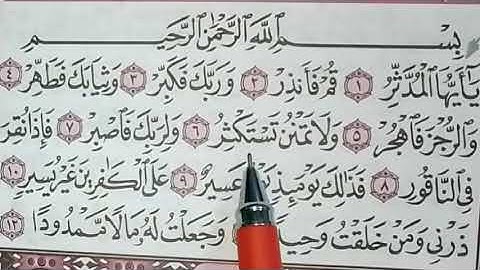 بِسْمِ ٱللَّهِ ٱلرَّحْمَٰنِ ٱلرَّحِيمِ
يَٰٓأَيُّهَا ٱلْمُدَّثِّرُ ١ قُمْ فَأَنذِرْ ٢ وَرَبَّكَ فَكَبِّرْ ٣ وَثِيَابَكَ فَطَهِّرْ ٤
وَٱلرُّجْزَ فَٱهْجُرْ ٥ وَلَا تَمْنُن تَسْتَكْثِرُ ٦ وَلِرَبِّكَ فَٱصْبِرْ ٧ فَإِذَا نُقِرَ
فِى ٱلنَّاقُورِ ٨ فَذَٰلِكَ يَوْمَئِذٍ عَسِيرٌ ٩ عَلَى ٱلْكَٰفِرِينَ غَيْرُ يَسِيرٍ ١٠
ذَرْنِى وَمَنْ خَلَقْتُ وَحِيدًا وَجَعَلْتُ لَهُۥ مَالًا مَّمْدُودًا ١٢